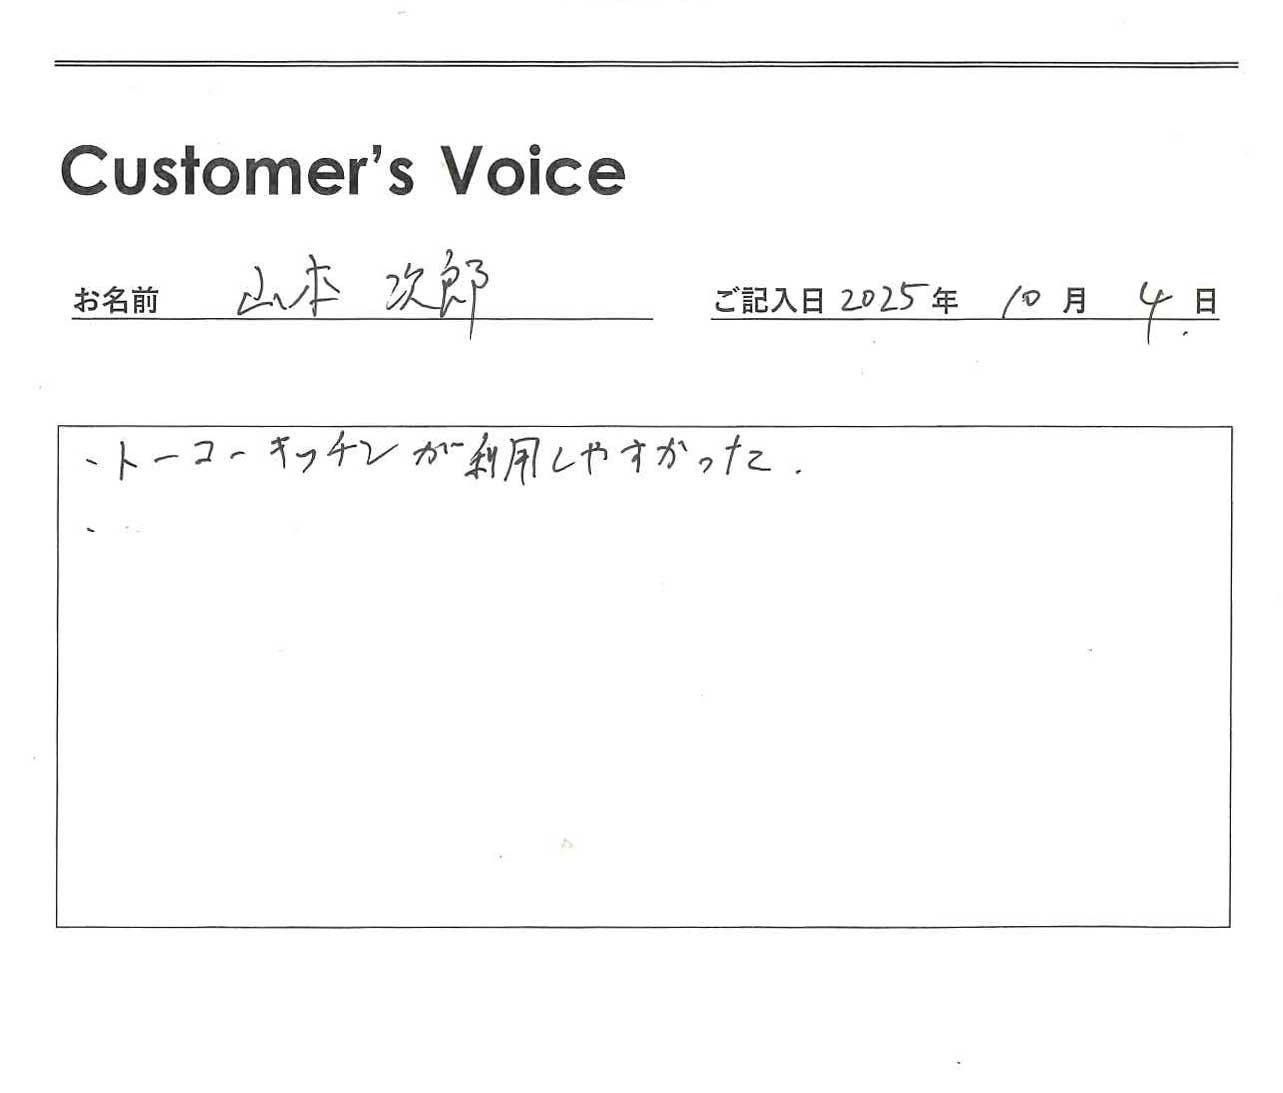 Customer's Voice
お名前 山本 次郎
ご記入日 2025年 10月 4日
、トーコーキッチンが利用しやすかった.
、